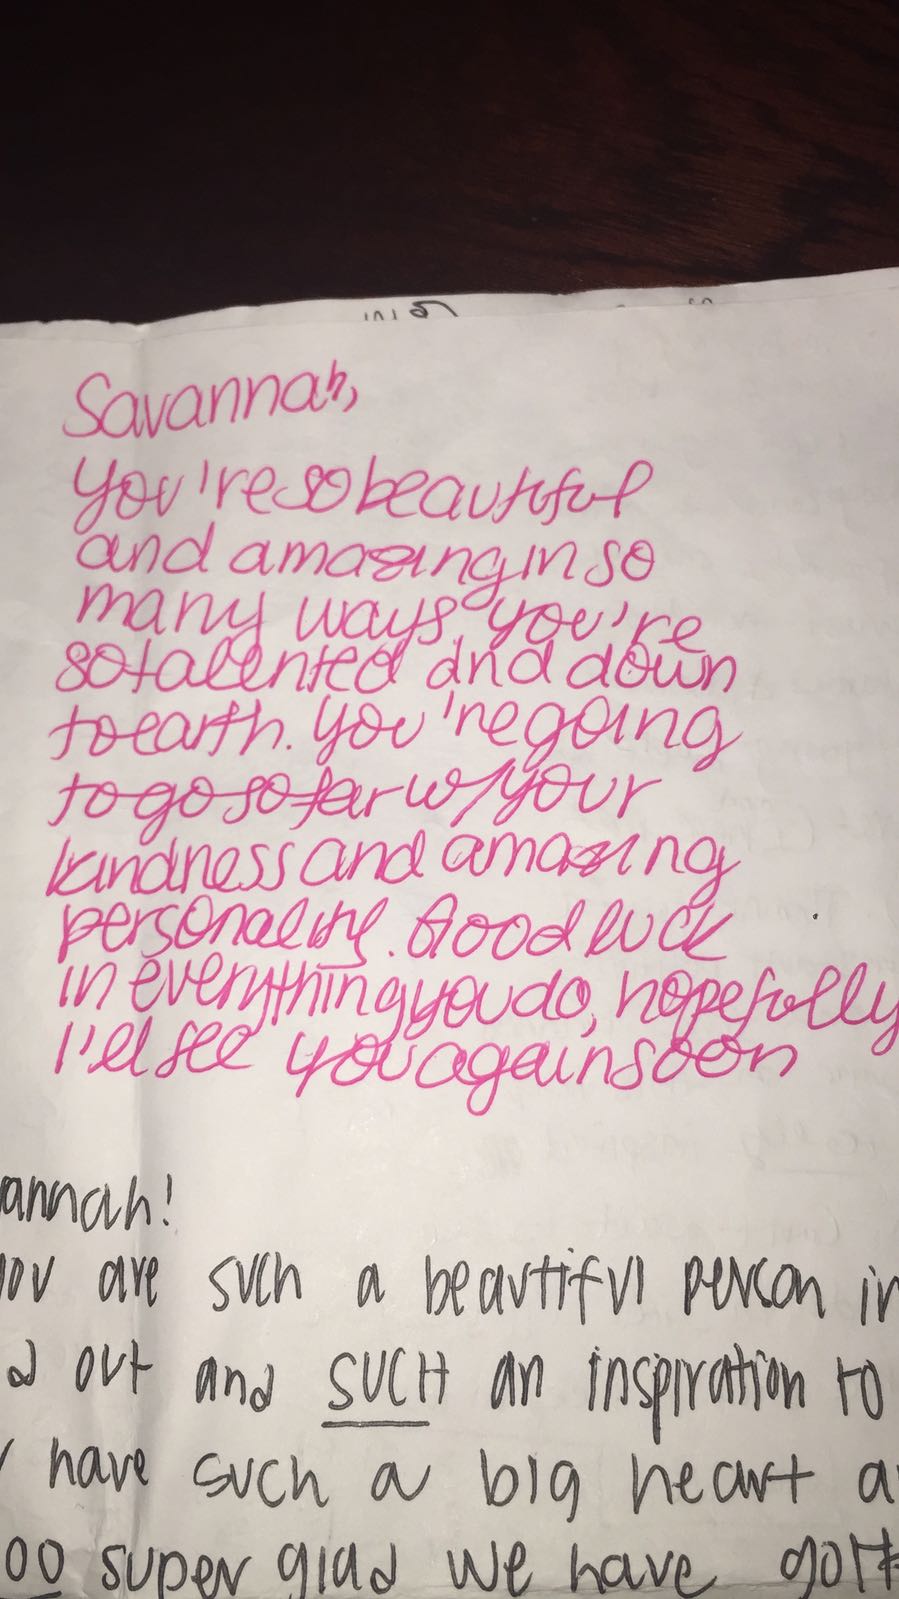 Savannah,
You're so beautiful
and amazing in so
many ways you're
so talented and down
to earth. You're going
to go so far w/ your
kindness and amazing
personality. Good luck
in everything you do, hopefully
I'll see you again soon
annah!
you are such a beautiful person in
d out and SUCH an inspiration to
have such a big heart a
oo super glad we have gott